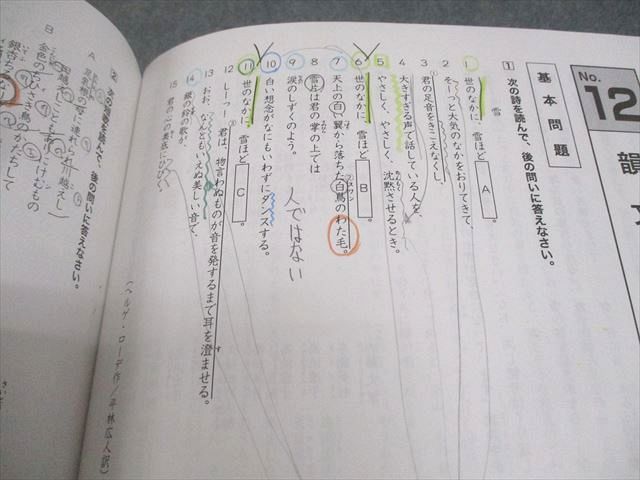 No.
12
韻
基本問題
1 次の詩を読んで、後の問いに答えなさい。
雪
1 世のなかに、雪ほど A 。
2 そーっと大気のなかをおりてきて、
3 君の足音をきこえなくし、
4 大きすぎる声で話している人を、
5 やさしく、やさしく、沈黙させるとき。
6 世のなかに、雪ほど B 。
7 天上の白い翼から落ちた白鳥のわた毛。
スワン
8 雪片は君の掌の上では
9 涙のしずくのよう。
人ではない
10 白い想念がなにもいわずにダンスする。
11 世のなかに、雪ほど C 。
12 しーっ！君は、物言わぬものが音を発するまで耳を澄ませる。
13 おお、なんともいえぬ美しい音で、
14 銀の鈴の歌が、
15 君の心の奥底にひびく。
（ヘルゲ・ローデ作／平林広人訳）
2 次の短歌を読んで、後の問いに答えなさい。
A
B 金色のちひさき鳥のかたちして